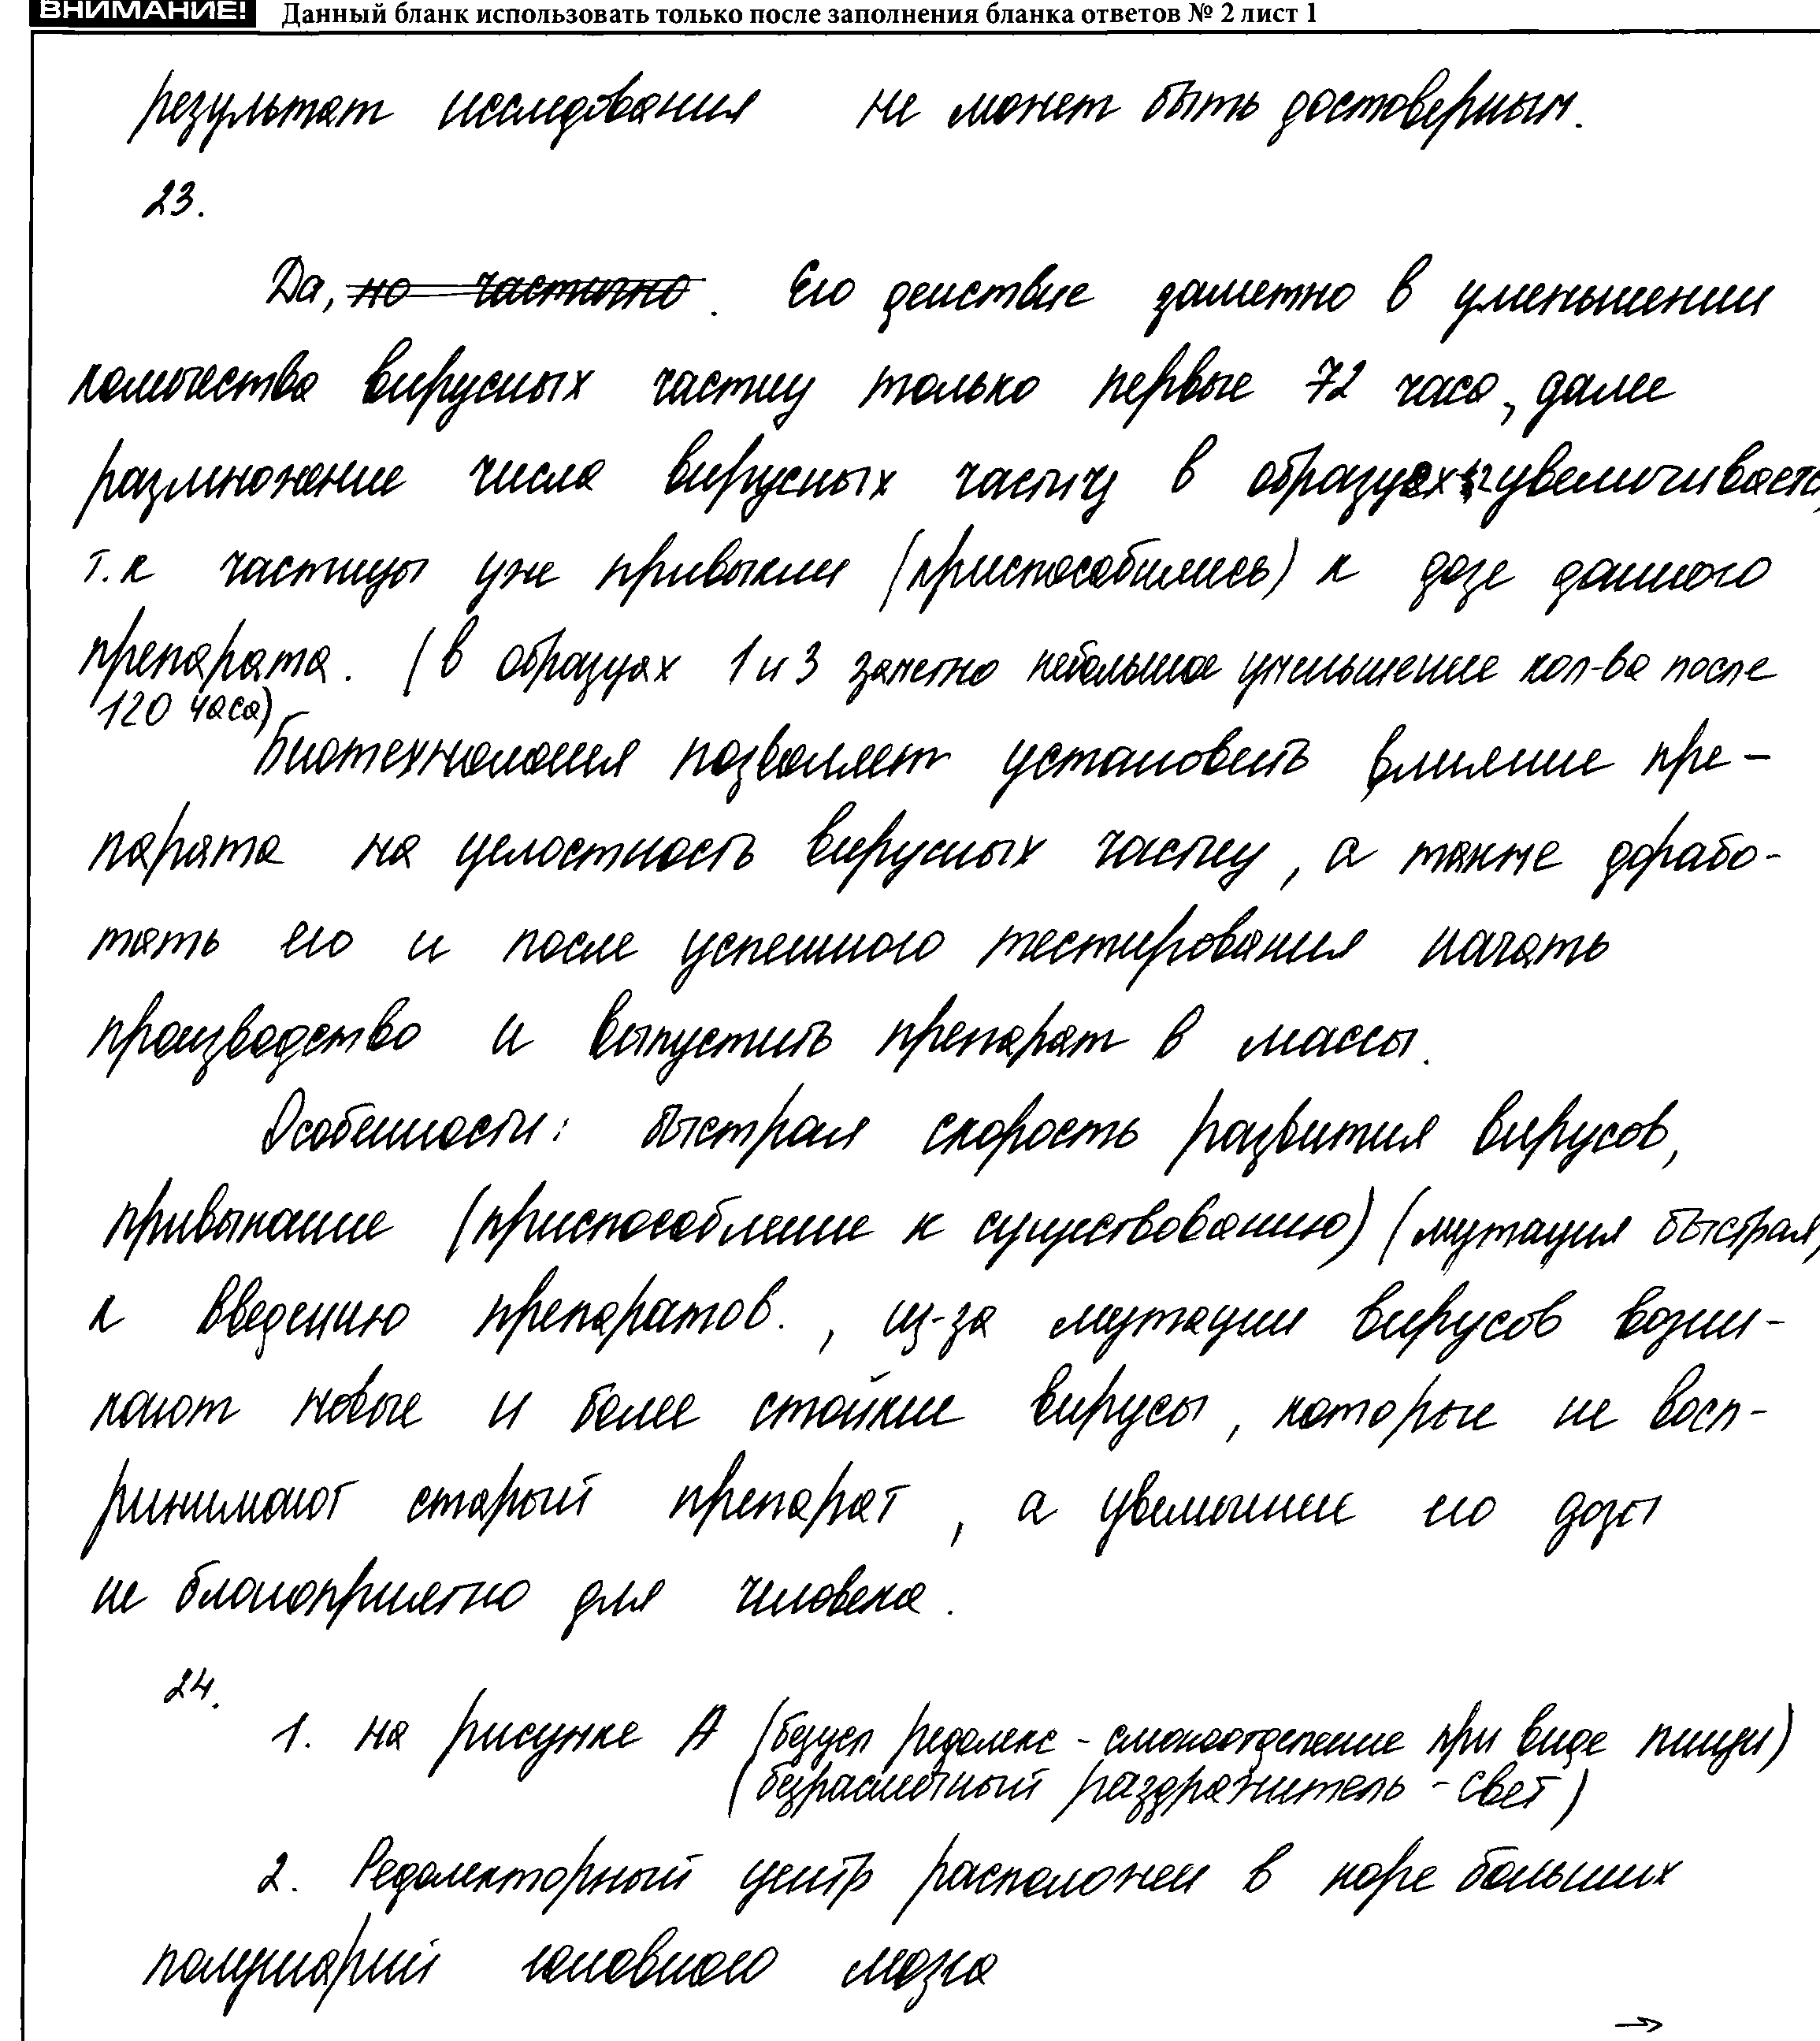 ВНИМАНИЕ! Данный бланк использовать только после заполнения бланка ответов № 2 лист 1
результат исследования не может быть достоверным.
23.
Да, но частично. Его действие заметно в уменьшении
количества вирусных частиц только первые 72 часа, далее
размножение числа вирусных частиц в образцах 2 увеличивается,
т.к частицы уже привыкли (приспособились) к дозе данного
препарата. (в образцах 1 и 3 заметно небольшое уменьшение кол-ва после
120 часа)
Биотехнология позволяет установить влияние пре-
парата на целостность вирусных частиц, а также дорабо-
тать его и после успешного тестирования начать
производство и выпустить препарат в массы.
Особенности: быстрая скорость развития вирусов,
привыкание (приспособление к существованию) (мутация быстрая)
к введению препаратов., из-за мутации вирусов возни-
кают новые и более стойкие вирусы, которые не восп-
ринимают старый препарат, а увеличение его дозы
не благоприятно для человека.
24.
1. на рисунке А (безусл рефлекс - слюноотделение при виде пищи)
(безразличный раздражитель - свет)
2. Рефлекторный центр расположен в коре больших
полушарий головного мозга
→